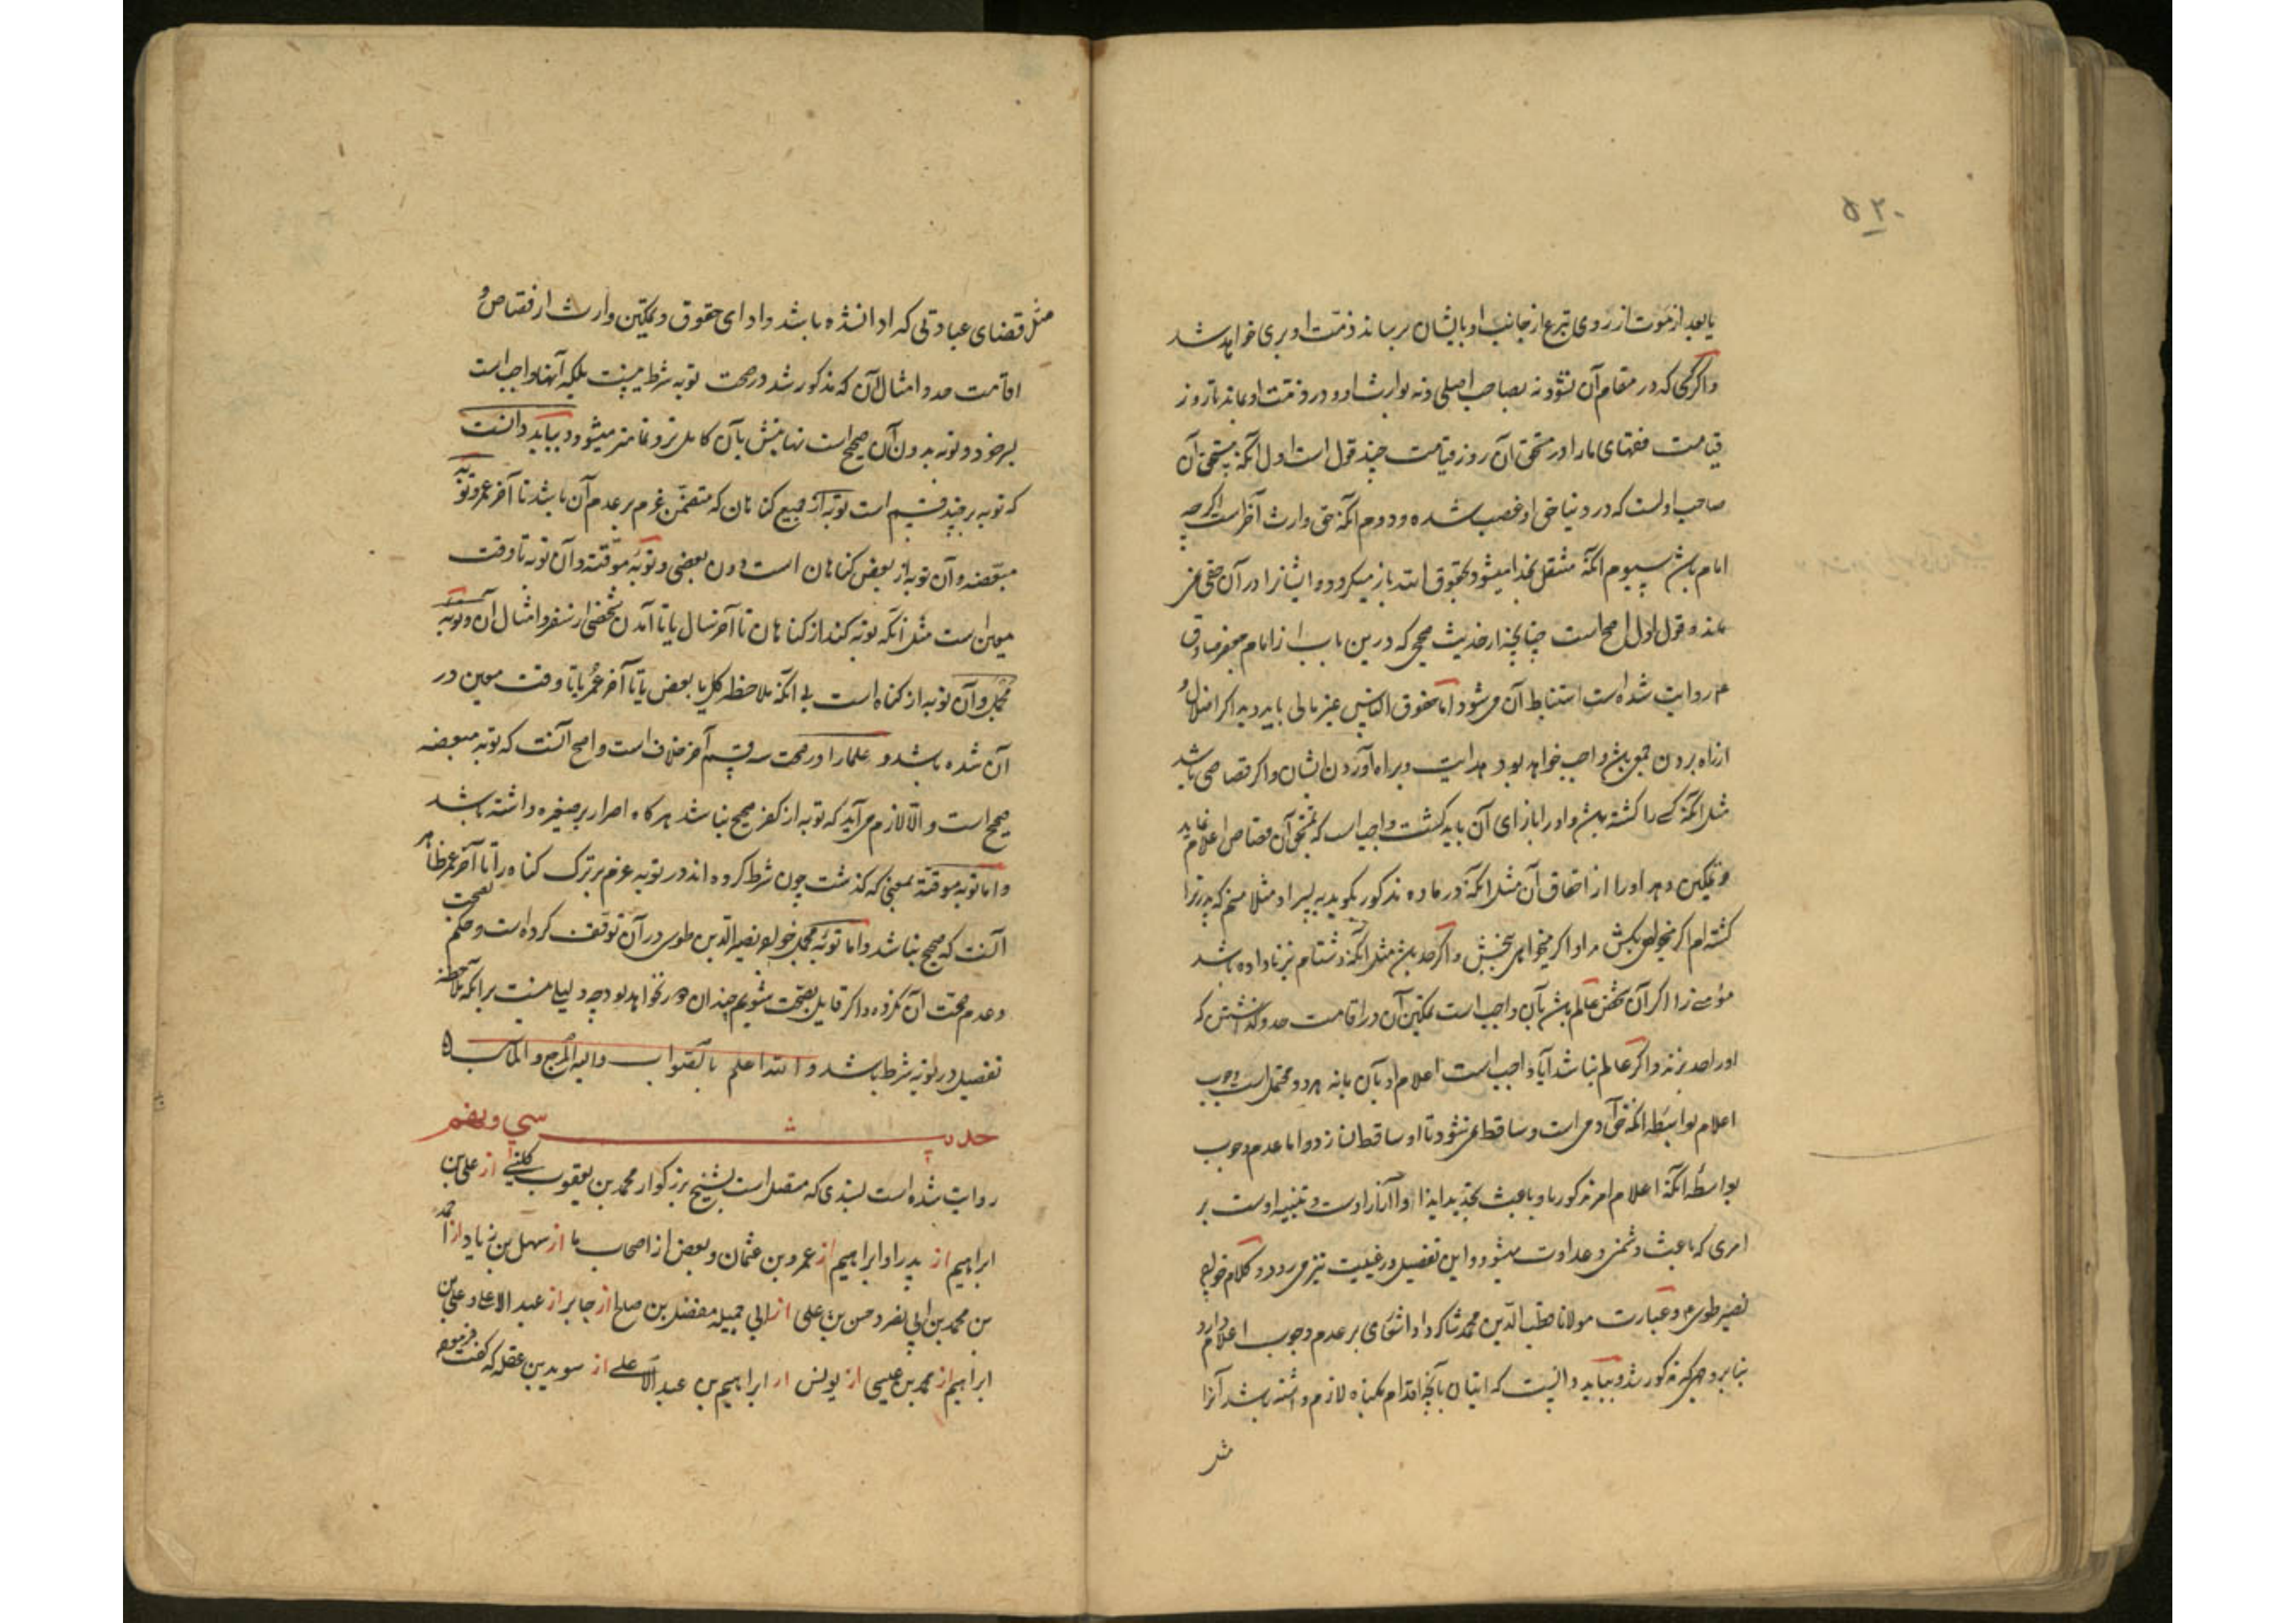 ۵۲۰
یا بعد از موت از روی تبرع از جانب او بایشان برساند ذمت او بری خواهد شد
واگر کسی که در مقام آن نشود نه بصاحب اصلی ونه بوارث او ودر ذمت او بماند تا روز
قیامت فقهای ما را در مستحق آن روز قیامت چند قول است اول آنکه مستحق آن
صاحب اولست که در دنیا حق او غصب شده ودوم آنکه حق وارث آخر است اگرچه
امام باشد سیوم آنکه منتقل بخدا میشود وبحقوق الله باز میگردد وایشانرا در آن حقی نمی
ماند وقول اول اصح است چنانچه از حدیث صحیحی که درین باب از امام جعفر صادق
ع روایت شده است استنباط آن می شود واما حقوق الناس غیر مالی باید دید اگر اضلال و
از راه بردن جمعی باشد واجب خواهد بود هدایت وبراه آوردن ایشان واگر قصاصی باشد
مثل آنکه کسی را کشته باشد واو را بازای آن باید کشت واجب است که مستحق آن قصاص اعلام نماید
وتمکین دهد او را از احقاق آن مثل آنکه در ماده مذکور بگوید به پسر او مثلا منم که پدر ترا
کشته ام اگر میخواهی بکش مرا و اگر میخواهی ببخش واگر حد باشد مثل آنکه دشنام بزنا داده باشد
مؤمنی را اگر آن شخص عالم باشد بآن واجب است تمکین آن در اقامت حد وگذاشتن که
او را حد بزند واگر عالم نباشد آیا واجب است اعلام او بآن یا نه هر دو محتمل است وجوب
اعلام بواسطه آنکه حق آدمی است وساقط نمی شود تا او ساقط نسازد واما عدم وجوب
بواسطه آنکه اعلام امر مذکور باو باعث تجدید ایذا وآزار اوست وتنبیه اوست بر
امری که باعث دشمنی وعداوت میشود واین تفصیل در غیبت نیز می رود وکلام خواجه
نصیر طوسی وعبارت مولانا قطب الدین محمد شاگرد او اشعاری بر عدم وجوب اعلام دارد
بنا بر وجهی که مذکور شد وبباید دانست که اتیان بآنچه اقدام بگناه لازم داشته باشد آنرا
مثل
مثل قضای عبادتی که ادا نشده باشد وادای حقوق وتمکین وارث از قصاص و
اقامت حد وامثال آن که مذکور شد در صحت توبه شرط نیست بلکه آنها واجب است
بسر خود وتوبه بدون آن صحیح است نهایتش بآن کامل تر وتمامتر میشود وبباید دانست
که توبه بر چند قسم است توبه از جمیع گناهان که متضمن عزم بر عدم آن باشد تا آخر عمر وتوبه
مبعضه وآن توبه از بعض گناهان است دون بعضی وتوبه موقته وآن توبه تا وقت
معین است مثل آنکه توبه کند از گناهان تا آخر سال یا تا آمدن شخصی از سفر وامثال آن وتوبه
مجمل وآن توبه از گناه است بی آنکه ملاحظه کل یا بعض یا تا آخر عمر یا تا وقت معین در
آن شده باشد وعلما را در صحت سه قسم آخر خلاف است واصح آنست که توبه مبعضه
صحیح است والا لازم می آید که توبه از کفر صحیح نباشد هر گاه اصرار بر صغیره داشته باشد
واما توبه موقته بمعنی که گذشت چون شرط کرده اند در توبه عزم بر ترک گناه را تا آخر عمر ظاهر
آنست که صحیح نباشد واما توبه مجمل خواجه نصیر الدین طوسی در آن توقف کرده است وحکم بصحت
وعدم صحت آن نکرده واگر قایل بصحت شویم چندان دور نخواهد بود چه دلیلی نیست بر آنکه ملاحظه
تفصیل در توبه شرط باشد والله اعلم بالصواب والیه المرجع والمآب ۵
حدیث سی وهفتم
روایت شده است بسندی که متصل است بشیخ بزرگوار محمد بن یعقوب کلینی از علی بن
ابراهیم از پدر او ابراهیم از عمرو بن عثمان وبعض از اصحاب ما از سهل بن زیاد واز احمد
بن محمد بن ابی نصر وحسن بن علی از ابی جمیله مفضل بن صالح از جابر از عبد الاعلی وعلی بن
ابراهیم از محمد بن عیسی از یونس از ابراهیم بن عبد الاعلی از سوید بن غفله که گفت فرمود